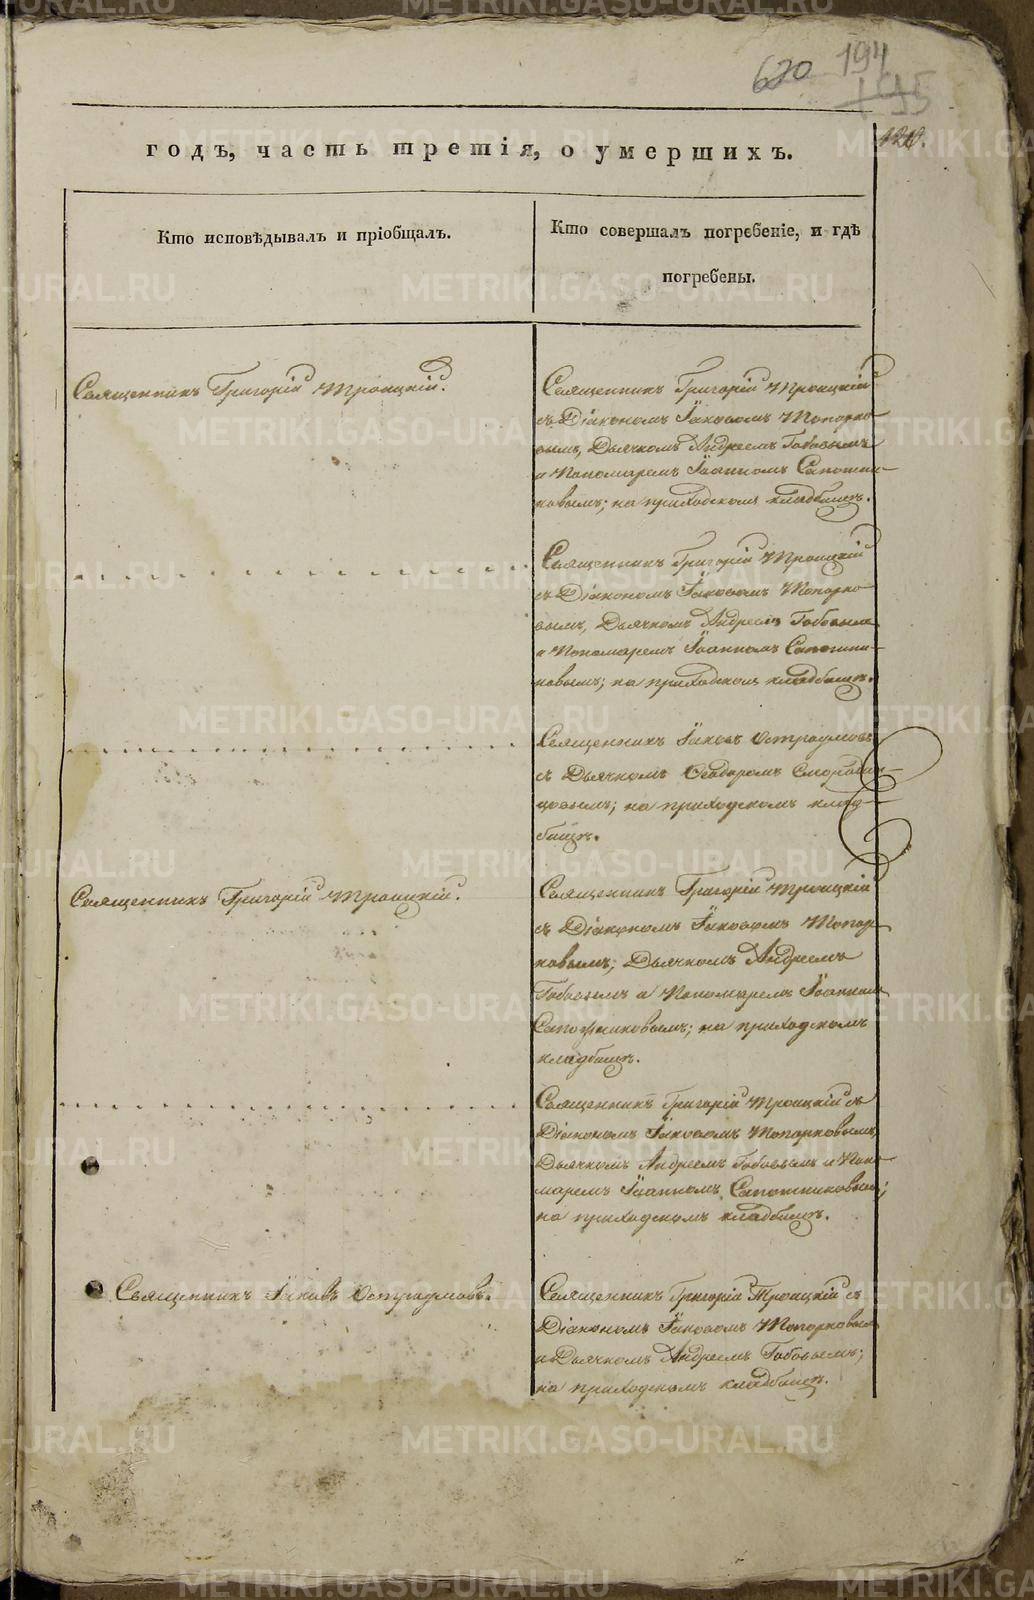 620 194
195
годъ, часть третія, о умершихъ.
Кто исповѣдывалъ и пріобщалъ.
Кто совершалъ погребеніе, и гдѣ
погребены.
Священникъ Григорій Троицкій.
Священникъ Григорій Троицкій
съ Діакономъ Іаковомъ Топорко-
вымъ, Дьячкомъ Андреемъ Бобовымъ
и Пономаремъ Іоанномъ Сапожни-
ковымъ; на приходскомъ кладбищѣ.
Священникъ Григорій Троицкій
съ Діакономъ Іаковомъ Топорко-
вымъ, Дьячкомъ Андреемъ Бобовымъ
и Пономаремъ Іоанномъ Сапожни-
ковымъ; на приходскомъ кладбищѣ.
Священникъ Іаковъ Остроумовъ
съ Дьячкомъ Ѳеодоромъ
цовымъ; на приходскомъ клад-
бищѣ.
Священникъ Григорій Троицкій.
Священникъ Григорій Троицкій
съ Діакономъ Іаковомъ Топор-
ковымъ; Дьячкомъ Андреемъ
Бобовымъ и Пономаремъ Іоанномъ
Сапожниковымъ; на приходскомъ
кладбищѣ.
Священникъ Григорій Троицкій съ
Діакономъ Іаковомъ Топорковымъ,
Дьячкомъ Андреемъ Бобовымъ и Поно-
маремъ Іоанномъ Сапожниковымъ;
на приходскомъ кладбищѣ.
Священникъ Іаковъ Остроумовъ.
Священникъ Григорій Троицкій съ
Діакономъ Іаковомъ Топорковымъ
и Дьячкомъ Андреемъ Бобовымъ;
на приходскомъ кладбищѣ.
METRIKI.GASO-URAL.RU